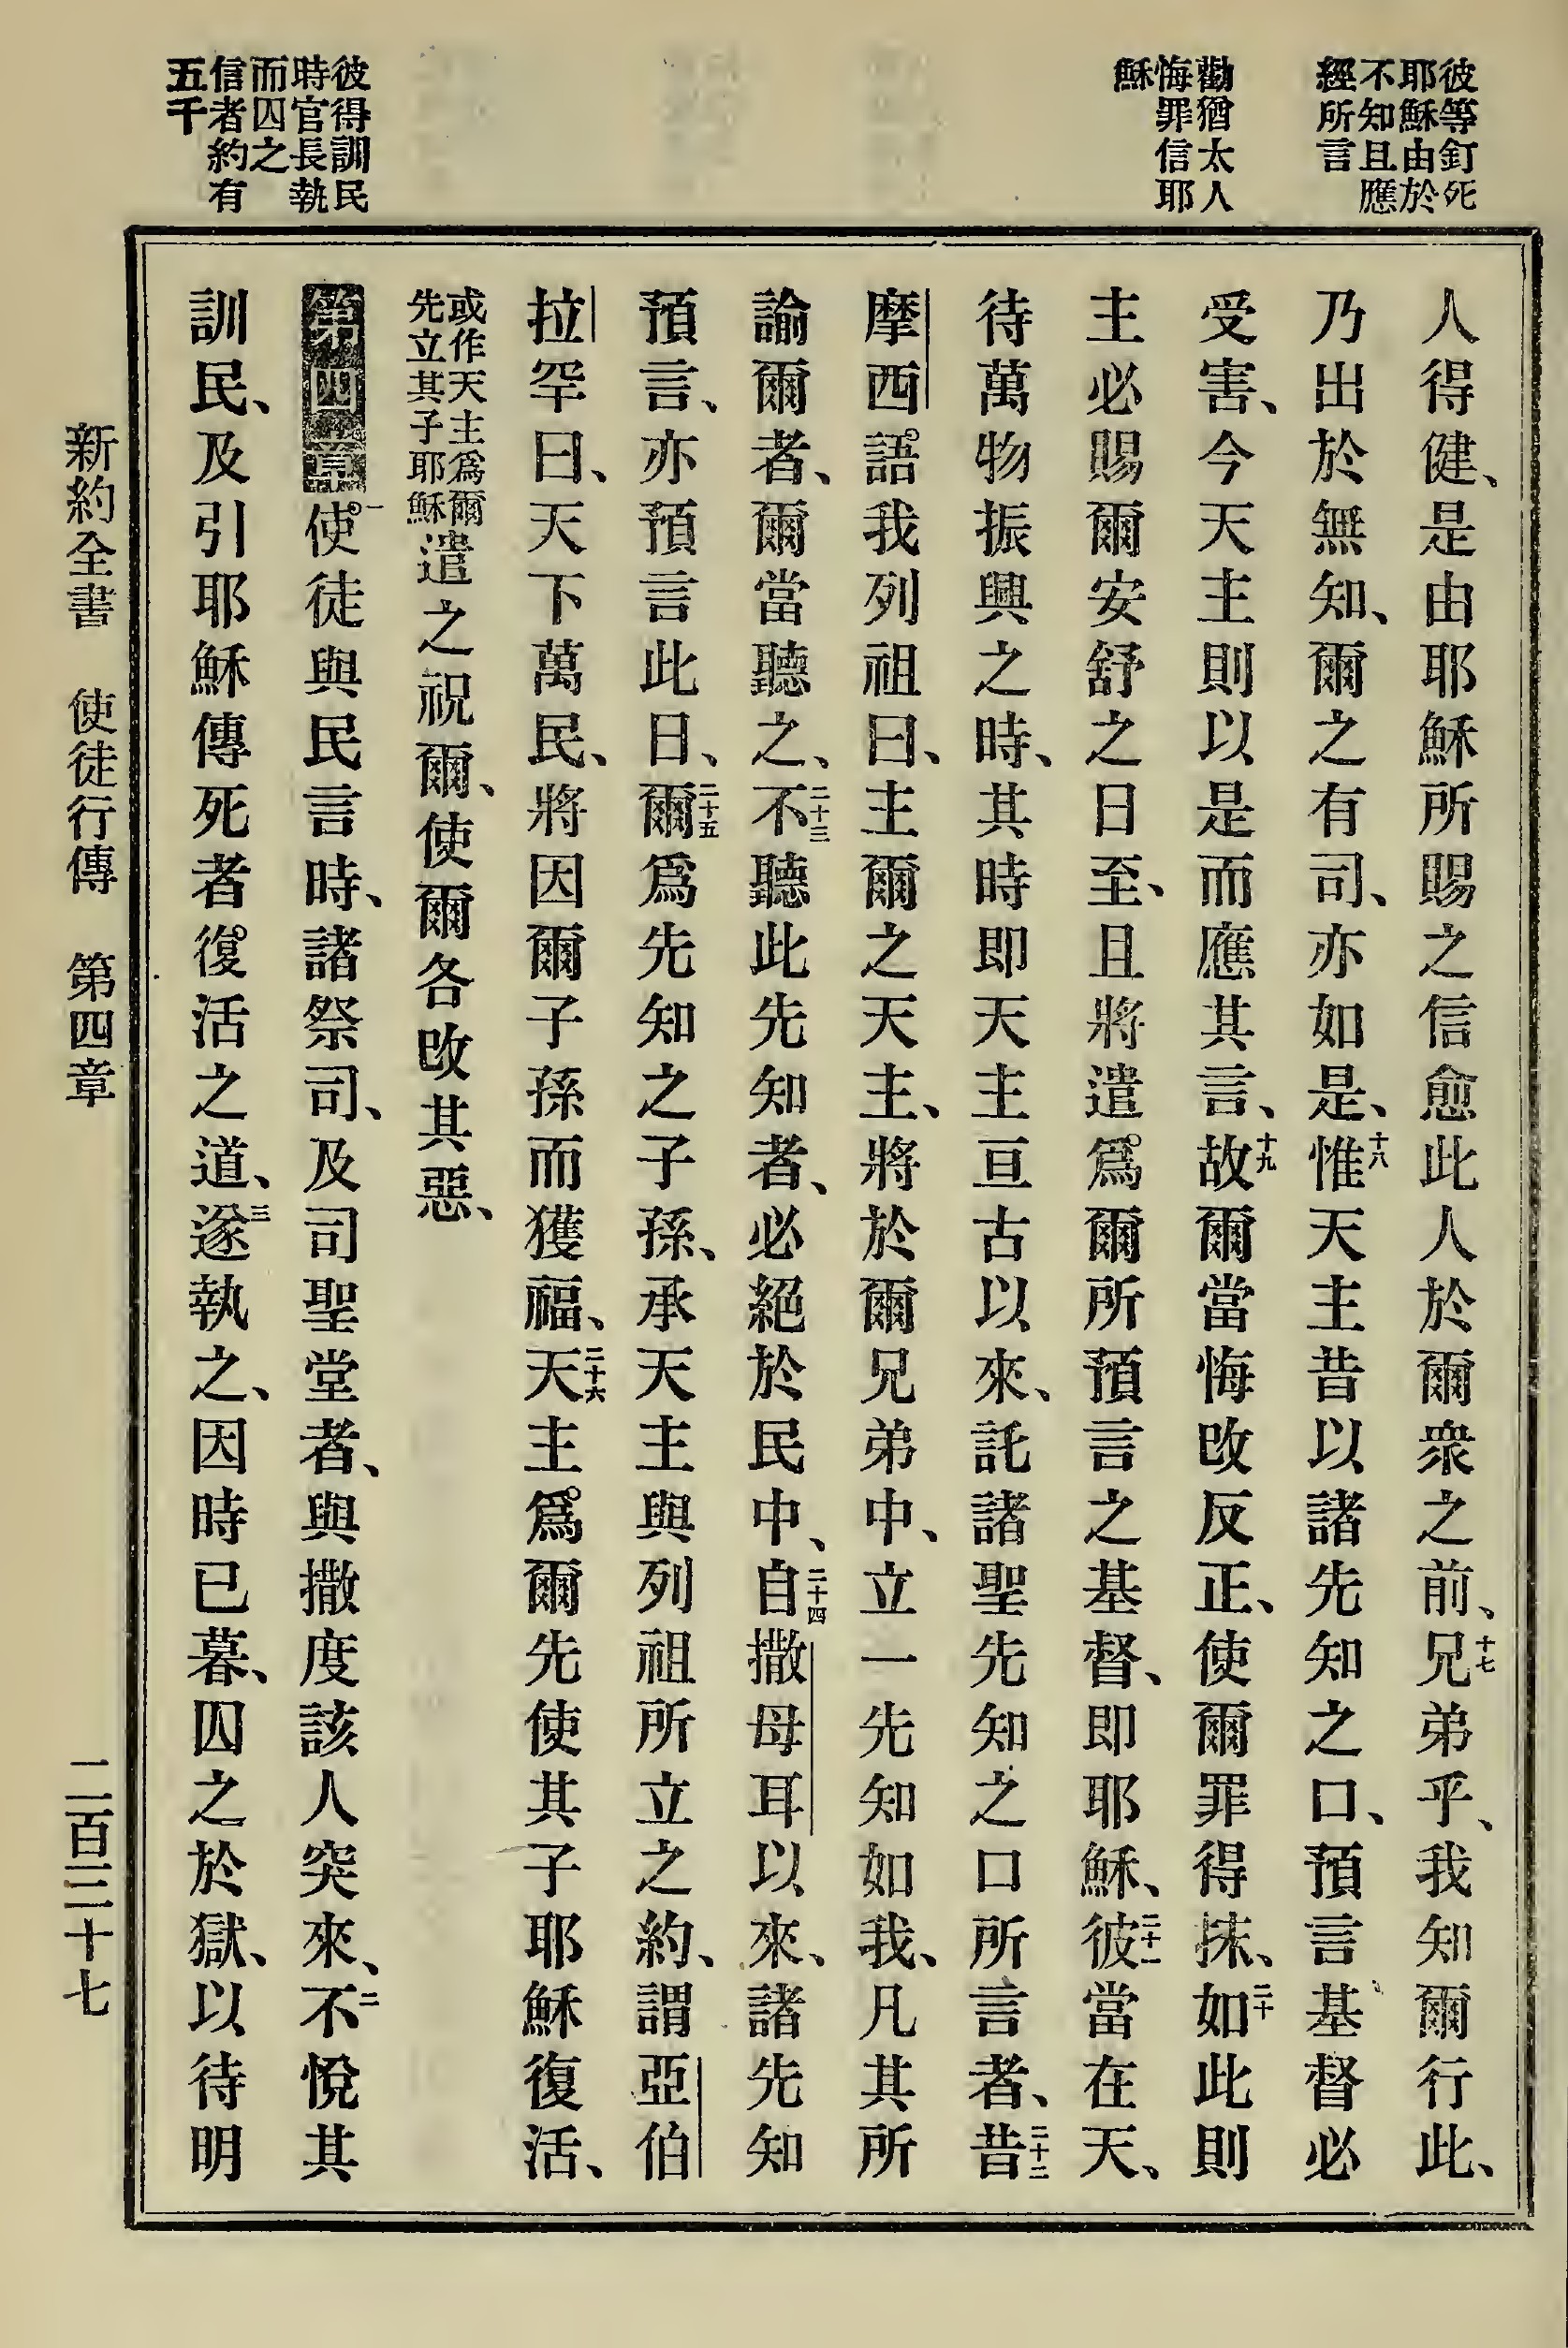 彼等釘死
耶穌由於
不知且應
經所言
勸猶太人
悔罪信耶
穌
彼得訓民
時官長執
而囚之
信者約有
五千
人得健、是由耶穌所賜之信愈此人於爾衆之前、十七兄弟乎、我知爾行此、
乃出於無知、爾之有司、亦如是、十八惟天主昔以諸先知之口、預言基督必
受害、今天主則以是而應其言、十九故爾當悔改反正、使爾罪得抹、二十如此則
主必賜爾安舒之日至、且將遣爲爾所預言之基督、即耶穌、二十一彼當在天、
待萬物振興之時、其時即天主亘古以來、託諸聖先知之口所言者、二十二昔
摩西語我列祖曰、主爾之天主、將於爾兄弟中、立一先知如我、凡其所
諭爾者、爾當聽之、二十三不聽此先知者、必絕於民中、二十四自撒母耳以來、諸先知
預言、亦預言此日、二十五爾爲先知之子孫、承天主與列祖所立之約、謂亞伯
拉罕曰、天下萬民、將因爾子孫而獲福、二十六天主爲爾先使其子耶穌復活、
或作天主爲爾
先立其子耶穌
遣之祝爾、使爾各改其惡、
第四章一使徒與民言時、諸祭司、及司聖堂者、與撒度該人突來、二不悅其
訓民、及引耶穌傳死者復活之道、三遂執之、因時已暮、囚之於獄、以待明
新約全書 使徒行傳 第四章 二百三十七